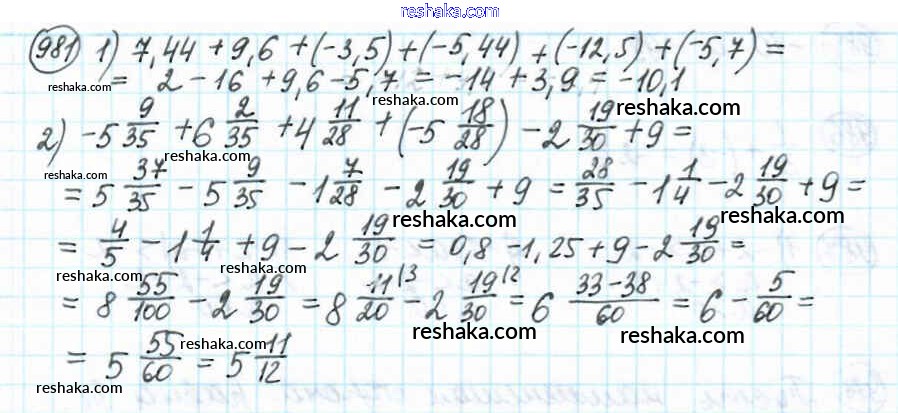 reshaka.ru
981 1) 7,44 + 9,6 + (-3,5) + (-5,44) + (-12,5) + (-5,7) =
= 2 - 16 + 9,6 - 5,7 = -14 + 3,9 = -10,1
reshaka.com reshaka.com reshaka.com
2) -5 9/35 + 6 2/35 + 4 11/28 + (-5 18/28) - 2 19/30 + 9 =
reshaka.com reshaka.com
= 5 37/35 - 5 9/35 - 1 7/28 - 2 19/30 + 9 = 28/35 - 1 1/4 - 2 19/30 + 9 =
reshaka.com reshaka.com reshaka.com
= 4/5 - 1 1/4 + 9 - 2 19/30 = 0,8 - 1,25 + 9 - 2 19/30 =
reshaka.com reshaka.com reshaka.com
= 8 55/100 - 2 19/30 = 8 11/20 |3 - 2 19/30 |2 = 6 33-38/60 = 6 - 5/60 =
reshaka.com reshaka.com reshaka.com
= 5 55/60 = 5 11/12
reshaka.com